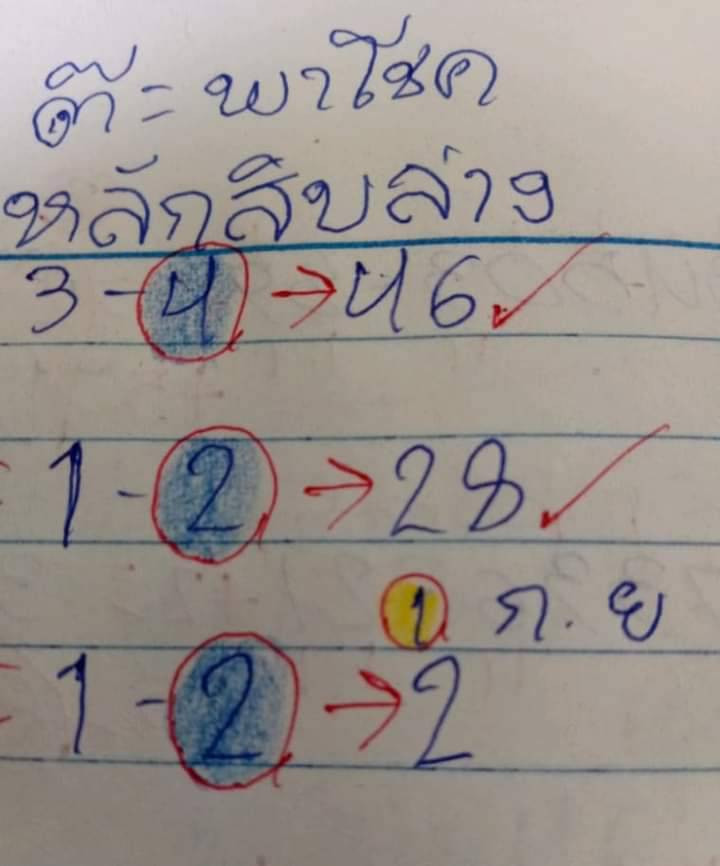 ต๊ะ พาโชค
หลักสิบล่าง
3-4 → 46 ✓
1-2 → 28 ✓
1 ก.ย
1-2 → 2